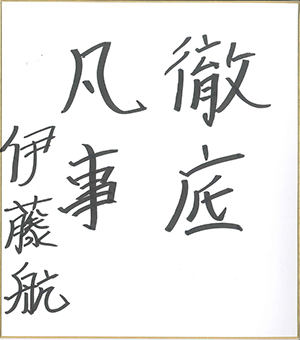 徹底
凡事
伊藤航